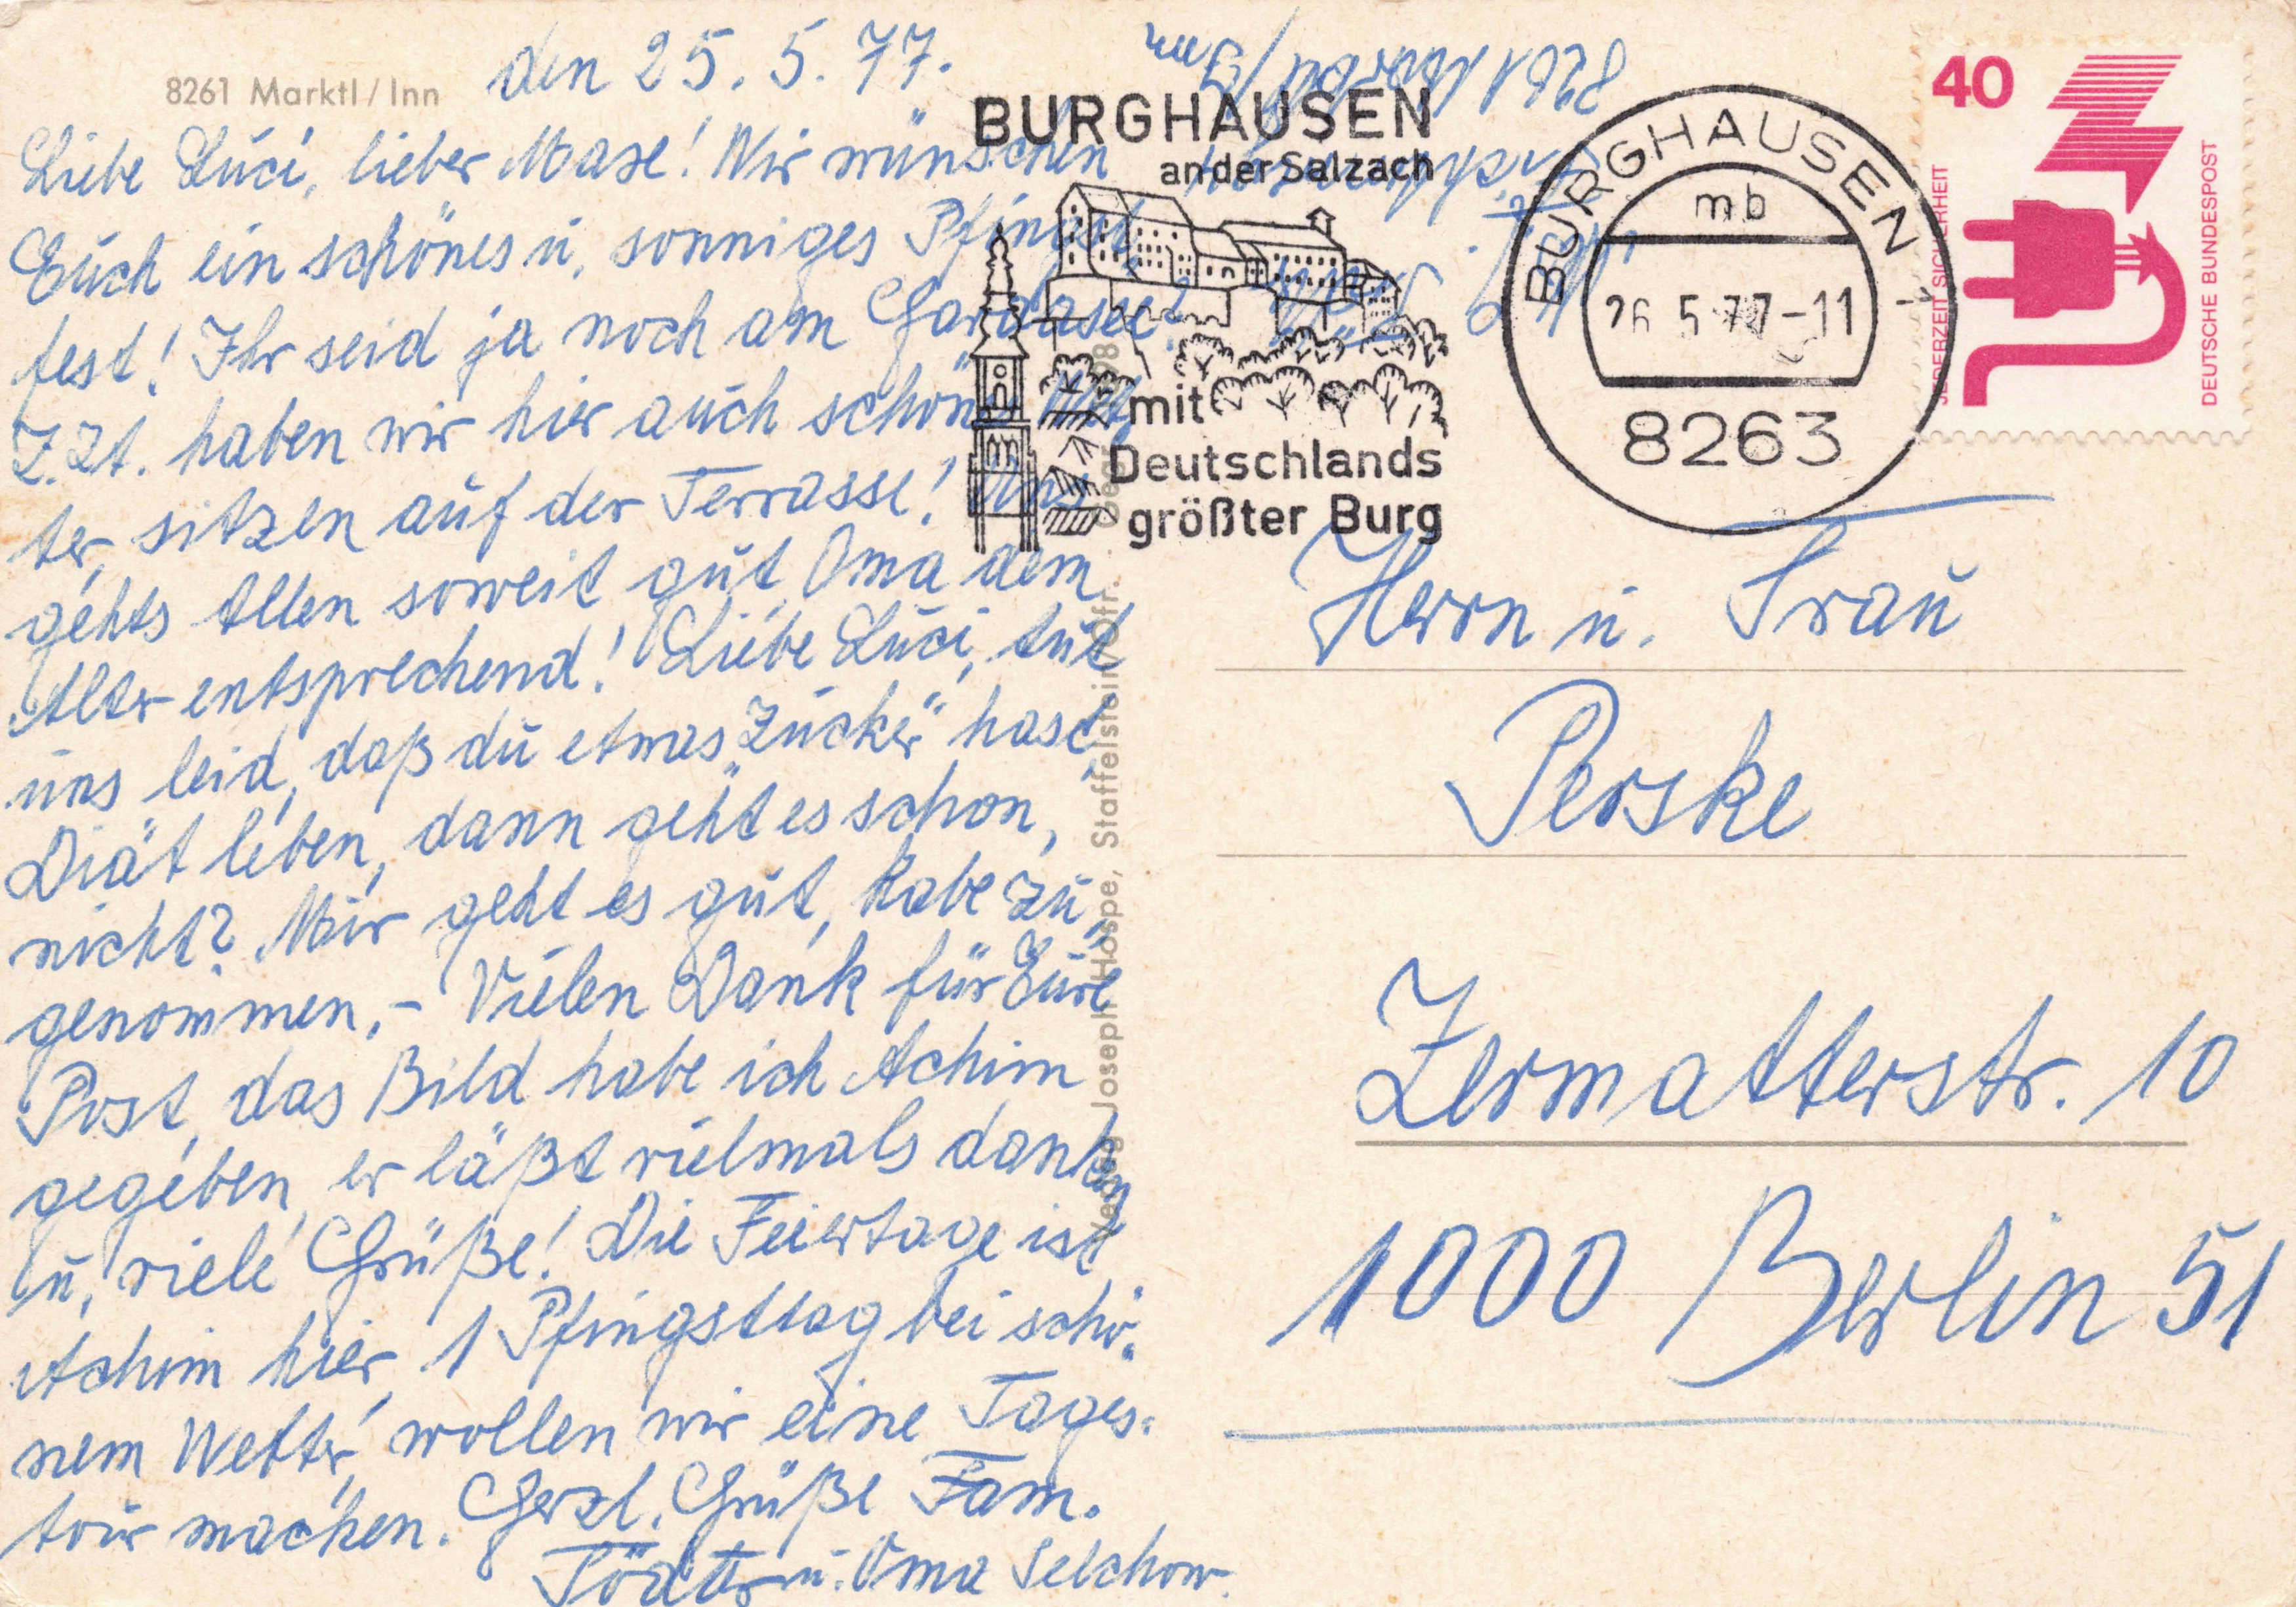 8261 Marktl/Inn den 25. 5. 77.
Liebe Luci, lieber Mase! Wir wünschen
Euch ein schönes u. sonniges Pfingst
fest! Ihr seid ja noch am Gardasee?
Z. Zt. haben wir hier auch schön Wet
ter, sitzen auf der Terrasse! Uns
gehts Allen soweit gut, Oma dem
Alter entsprechend! Liebe Luci, tut
uns leid, daß du etwas "Zucker" hast,
Diät leben, dann geht es schon,
nicht? Mir geht es gut, habe zu
genommen.- Vielen Dank für Eure
Post, das Bild habe ich Achim
gegeben, er läßt vielmals danken
u. viele Grüße! Die Feiertage ist
Achim hier, 1 Pfingsttag bei schö-
nem Wetter, wollen wir eine Tages-
tour machen. Herzl. Grüße Fam.
u. Oma Selchow.
8261 Marktl/Inn
BURGHAUSEN
an der Salzach
mit
Deutschlands
größter Burg
BURGHAUSEN 1
mb
26.5.77-11
8263
40
JEDERZEIT SICHERHEIT
DEUTSCHE BUNDESPOST
Verlag Joseph Hospe, Staffelstein/Ofr.
Herrn u. Frau
Perske
Zermatterstr. 10
1000 Berlin 51